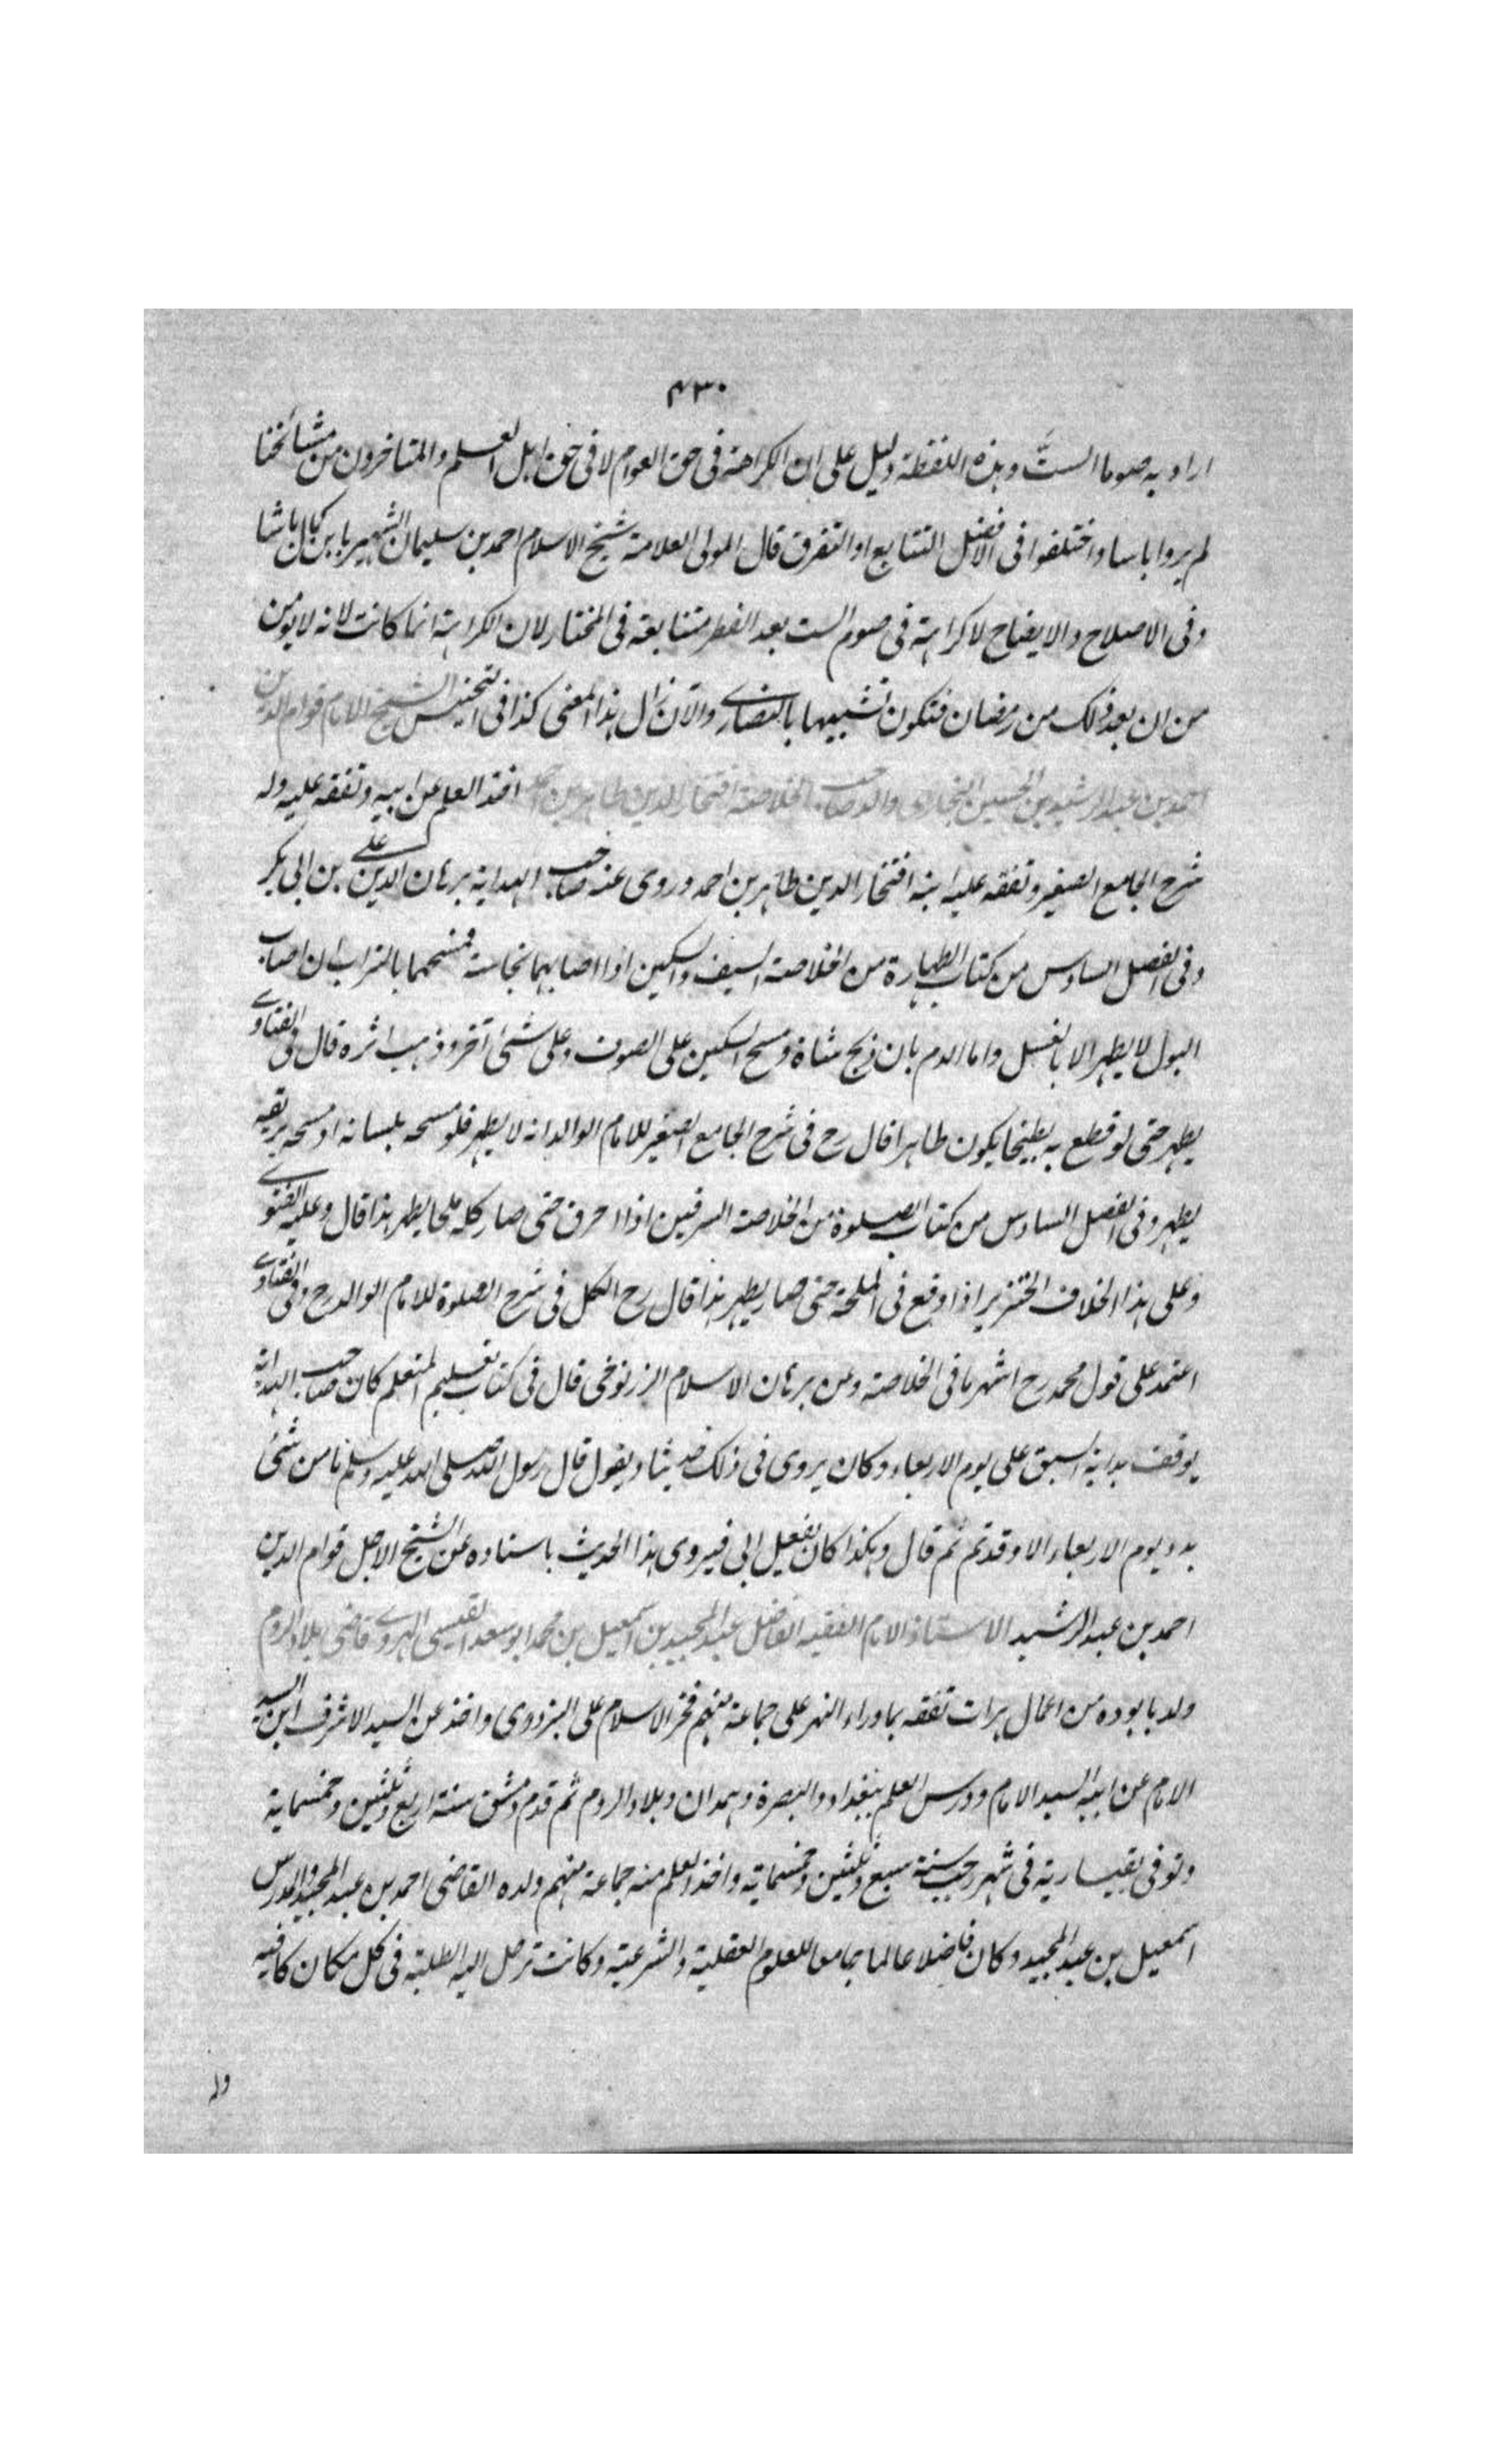 ٤٣٠
اراد به صوما الستّ وهذه اللفظة دليل على ان الكراهة فى حق العوام لا فى حق اهل العلم والمتاخرون من مشائخنا
لم يروا باسا واختلفوا فى الافضل التتابع او التفرق قال المولى العلامة شيخ الاسلام احمد بن سليمان الشهير بابن كمال باشا
وفى الاصلاح والايضاح لا كراهة فى صوم الست بعد الفطر متتابعة فى المختار لان الكراهة انما كانت لانه لا يومن
من ان يعد ذلك من رمضان فتكون تشبيها بالنصارى والآن زال هذا المعنى كذا فى التجنيس الشيخ الامام قوام الدين
احمد بن عبد الرشيد بن الحسين البخارى والد صاحب الخلاصة افتخار الدين طاهر بن احمد اخذ العلم عن ابيه وتفقه عليه وله
شرح الجامع الصغير وتفقه عليه ابنه افتخار الدين طاهر بن احمد وروى عنه صاحب الهداية برهان الدين على بن ابى بكر
وفى الفصل السادس من كتاب الطهارة من الخلاصة السيف والسكين اذا اصابهما نجاسة فمسحهما بالتراب ان اصاب
البول لا يطهر الا بالغسل واما الدم بان ذبح شاة ومسح السكين على الصوف وعلى شئ آخر وذهب اثره قال فى الفتاوى
يطهر حتى لو قطع به بطيخا يكون طاهرا قال رح فى شرح الجامع الصغير للامام الوالد انه لا يطهر فلو مسحه بلسانه او مسحه بريقه
يطهر وفى الفصل السادس من كتاب الصلوة من الخلاصة السرقين اذا احرق حتى صار كله ملحا يطهر هذا قال وعليه الفتوى
وعلى هذا الخلاف الخنزير اذا وقع فى المملحة حتى صار يطهر هذا قال رح الكل فى شرح الصلوة للامام الوالد رح وفى الفتاوى
اعتمد على قول محمد رح اشهر ما فى الخلاصة وعن برهان الاسلام الزرنوجى قال فى كتاب تعليم المتعلم كان صاحب الهداية
يوقف بداية السبق على يوم الاربعاء وكان يروى فى ذلك حديثا ويقول قال رسول الله صلى الله عليه وسلم ما من شئ
بدء يوم الاربعاء الا وقد تم ثم قال وهكذا كان يفعل ابى فيروى هذا الحديث باسناده عن الشيخ الاجل قوام الدين
احمد بن عبد الرشيد الاستاذ الامام الفقيه الفاضل عبد المجيد بن اسمعيل بن محمد ابو سعد القيسى الهروى قاضى بلاد الروم
ولد بابوده من اعمال هرات تفقه بماوراء النهر على جماعة منهم فخر الاسلام على البزدوى واخذ عن السيد الاشرف ابن السيد
الامام عن ابيه السيد الامام ودرس العلم ببغداد والبصرة وهمدان وبلاد الروم ثم قدم دمشق سنة اربع وثلثين وخمسماية
وتوفى بقيسارية فى شهر رجب سنة سبع وثلثين وخمسماية واخذ العلم منه جماعة منهم ولده القاضى احمد بن عبد المجيد والمدرس
اسمعيل بن عبد المجيد وكان فاضلا عالما جامعا للعلوم العقلية والشرعية وكانت ترحل اليه الطلبة فى كل مكان كافيه
وله